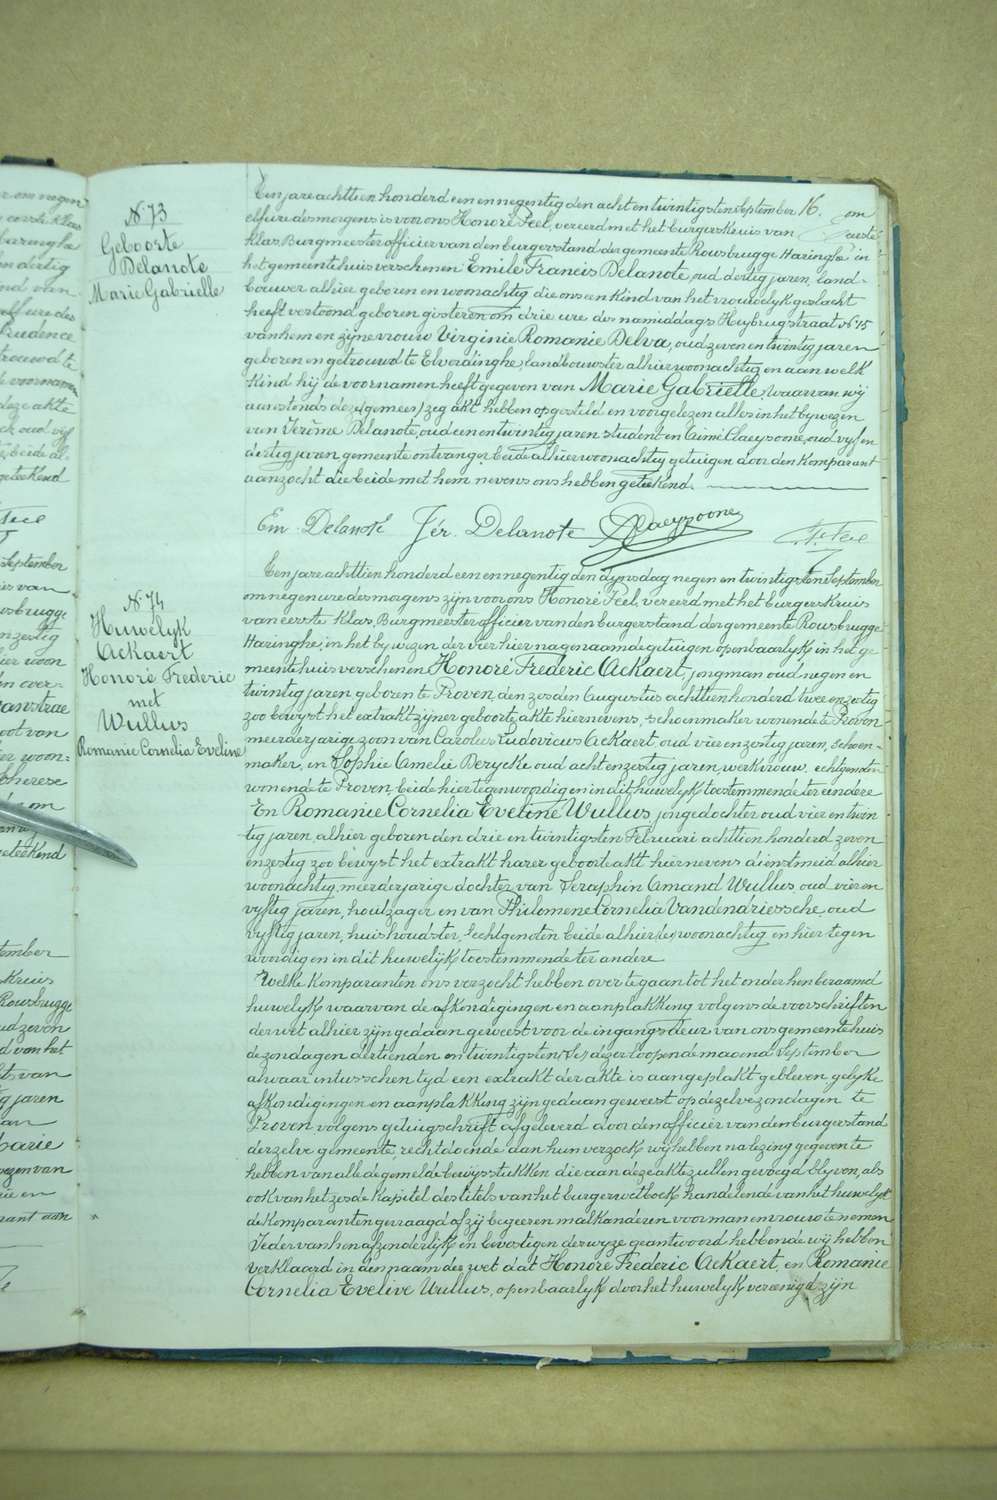 N. 73
Geboorte
Delanote
Marie Gabrielle
Een jare achttien honderd een en negentig den acht en twintigsten September 16. om
elf ure des morgens is voor ons Honoré Peel, vereerd met het burgerskruis van eerste
klas, Burgmeester officier van den burgerstand der gemeente Rousbrugge Haringhe in
het gemeentehuis verschenen Emile Francis Delanote, oud dertig jaren, land-
bouwer alhier geboren en woonachtig die ons een kind van het vrouwelyk geslacht
heeft vertoond geboren gisteren om drie ure des namiddags Heybrugstraat N° 15
van hem en zijne vrouw Virginie Romanie Delva, oud zeven en twintig jaren
geboren en getrouwd te Elverdinghe, landbouwster alhier woonachtig en aan welk
kind hij de voornamen heeft gegeven van Marie Gabrielle, waarvan wij
aanstonds deze (gemeen) zeg akt hebben opgesteld en voorgelezen alles in het bywezen
van Jerôme Delanote, oud een en twintig jaren student en Aimé Claeysoone, oud vyf en
dertig jaren, gemeente ontvanger, beide alhier woonachtig getuigen door den komparant
aanzocht die beide met hem nevens ons hebben geteekend.
Em. Delanote Jér. Delanote AClaeysoone H. Peel
N. 74
Huwelyk
Ackaert
Honoré Frederic
met
Wullus
Romanie Cornelia Eveline
Een jare achttien honderd een en negentig den dynsdag negen en twintigsten September
om negen ure des morgens zijn voor ons Honoré Peel, vereerd met het burgerskruis
van eerste klas, Burgmeester officier van den burgerstand der gemeente Rousbrugge
Haringhe, in het bywezen der vier hier nagenaamde getuigen openbaarlyk in het ge-
meentehuis verschenen Honoré Frederic Ackaert, jongman oud negen en
twintig jaren geboren te Proven, den zesden Augustus achttien honderd twee en zestig
zoo bewyst het extrakt zijner geboorte akte hiernevens, schoenmaker wonende te Proven
meerderjarige zoon van Carolus Ludovicus Ackaert, oud vier en zestig jaren, schoen-
maker, en Sophie Amelie Derycke oud acht en zestig jaren, werkvrouw, echtgenoten
wonende te Proven, beide hier tegenwoordig en in dit huwelyk toestemmende ter eindere
En Romanie Cornelia Eveline Wullus, jongedochter oud vier en twin
tig jaren, alhier geboren den drie en twintigsten Februari achttien honderd zeven
en zestig zoo bewyst het extrakt harer geboortakt hiernevens dienstmeid alhier
woonachtig, meerderjarige dochter van Seraphin Amand Wullus, oud vier en
vyftig jaren, houtzager en van Philomene Cornelia Vandendriessche, oud
vyftig jaren, huishoudster, echtgenoten beide alhier woonachtig en hier tegen
woordig en in dit huwelyk toestemmende ter andere
Welke komparanten ons verzocht hebben over te gaan tot het onder hen beraamd
huwelyk waarvan de afkondigingen en aanplakking volgens de voorschriften
der wet alhier zijn gedaan geweest voor de ingangsdeur van ons gemeentehuis
de zondagen dertienden en twintigsten dezer loopende maand September
alwaar intusschen tyd een extrakt der akte is aangeplakt gebleven gelyke
afkondigingen en aanplakking zijn gedaan geweest op dezelve zondagen te
Proven volgens getuigschrift afgeleverd door den officier van den burgerstand
derzelve gemeente, rechtdoende aan hun verzoek wij hebben na lezing gegeven te
hebben van alle de gemelde bewysstukken die aan deze akt zullen gevoegd blyven, als
ook van het zesde kapitel des titels van het burgerwetboek handelende van het huwelyk
de komparanten gevraagd of zij begeeren malkanderen voor man en vrouw te nemen
Jeder van hen afzonderlijk en bevestigender wyze geantwoord hebbende wij hebben
verklaard in den naam der wet dat Honoré Frederic Ackaert, en Romanie
Cornelia Eveline Wullus, openbaarlyk door het huwelyk vereenigd zijn